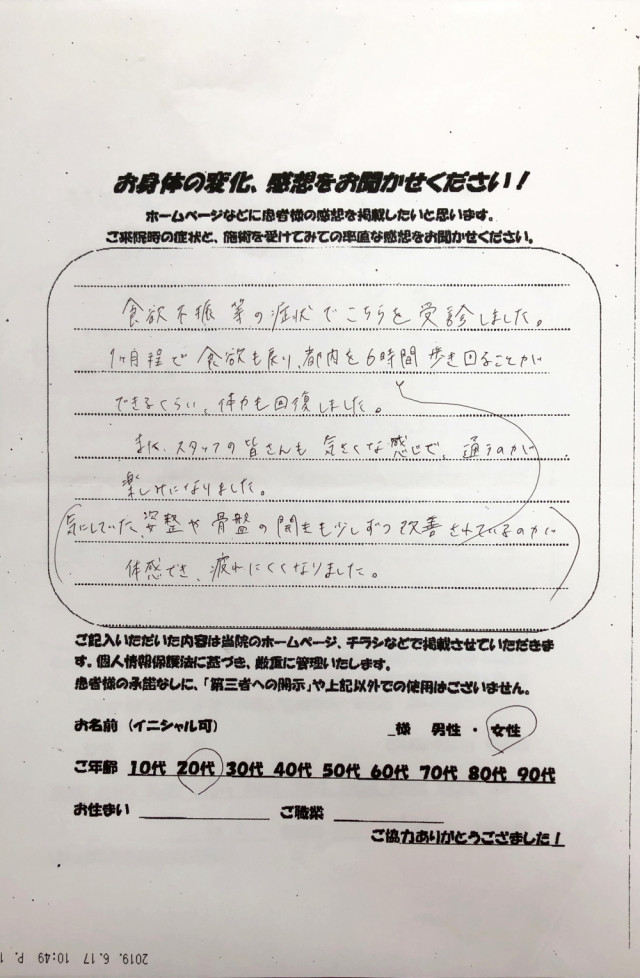 お身体の変化、感想をお聞かせください！
ホームページなどに患者様の感想を掲載したいと思います。
ご来院時の症状と、施術を受けてみての率直な感想をお聞かせください。
食欲不振等の症状でこちらを受診しました。
1ヶ月程で食欲も戻り、都内を6時間歩き回ることが
できるくらい、体力も回復しました。
また、スタッフの皆さんも気さくな感じで、通うのが
楽しみになりました。
気にしていた、姿整や骨盤の開きも少しずつ改善されているのが
体感でき、疲れにくくなりました。
ご記入いただいた内容は当院のホームページ、チラシなどで掲載させていただきま
す。個人情報保護法に基づき、厳重に管理いたします。
患者様の承諾なしに、「第三者への開示」や上記以外での使用はございません。
お名前（イニシャル可） _様 男性・女性
ご年齢 10代 20代 30代 40代 50代 60代 70代 80代 90代
お住まい ご職業
ご協力ありがとうござました！
2019. 6.17 10:49 P. 1